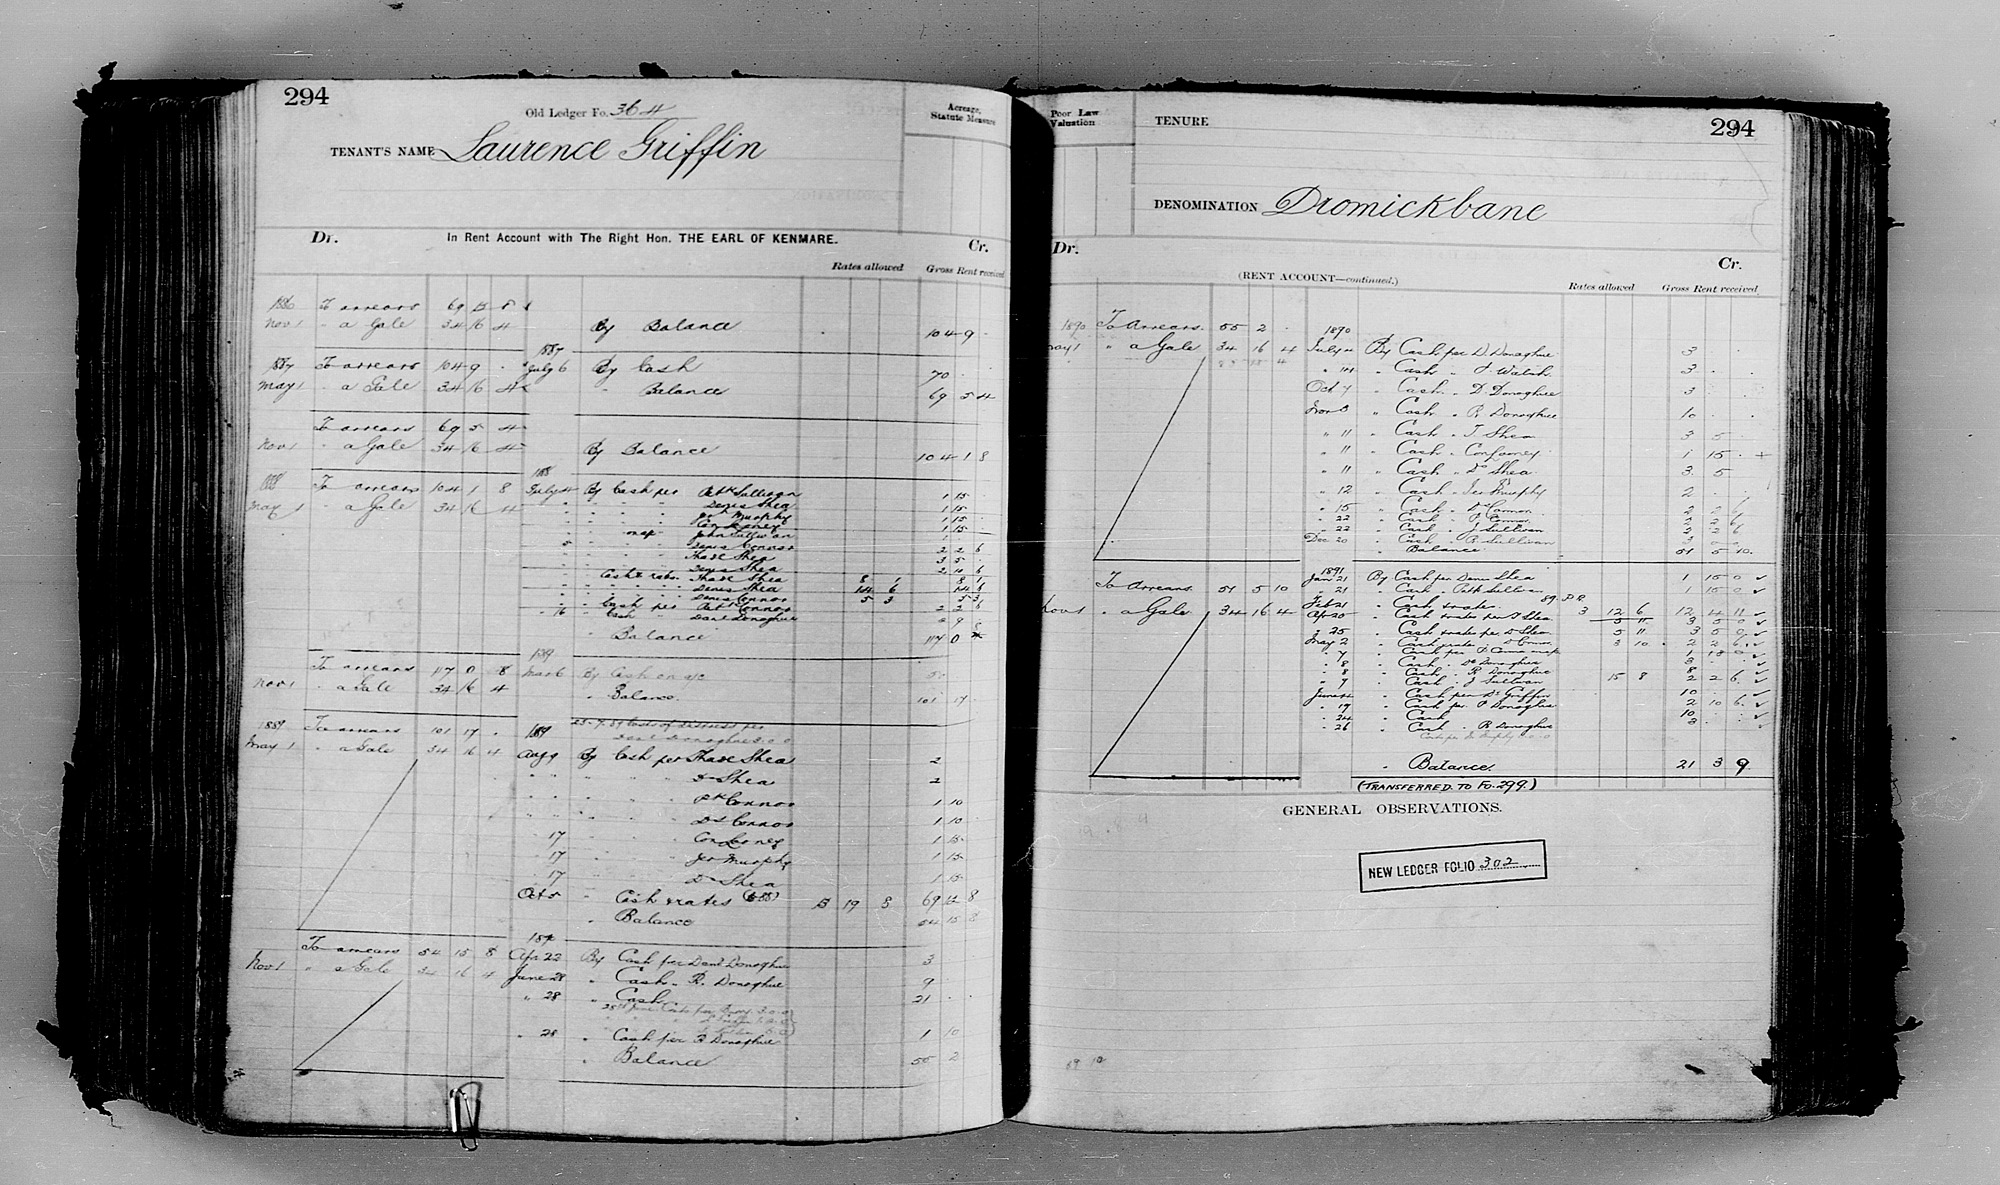 294
Old Ledger Fo. 364
Acreage, Statute Measure
TENANT'S NAME Laurence Griffin
Dr. In Rent Account with The Right Hon. THE EARL OF KENMARE. Cr.
Rates allowed Gross Rent received
1886 To arrears 69 12 8
Nov 1 " a Gale 34 16 4 By Balance 104 9 -
1887 To arrears 104 9 - 1887 July 6 By Cash 70 - -
May 1 " a Gale 34 16 4 Balance 69 5 4
To arrears 69 5 4
Nov 1 " a Gale 34 16 4 By Balance 104 1 8
1888 To arrears 104 1 8 188 July 4 By Cash per Patk Sullivan 1 15
May 1 " a Gale 34 16 4 Denis Shea 1 15
Jer Murphy 1 15
Con Looney 1 15
John Sullivan 1
Denis Connor 2 2 6
Thade Shea 3 5
Denis Shea 2 11 6
Cash & rates Thade Shea 8 1 8 1
Denis Shea 14 6 14 6
Denis Connor 5 3 5 3
" 16 Cash per Patk Connor 2 2 6
Cash " Danl Donoghue 2 9
" Balance 117 0 8
To arrears 117 0 8 189 Mar 6 By Cash on a/c 50
Nov 1 " a Gale 34 16 4 " Balance 101 17 -
1889 To arrears 101 17 - 189
May 1 " a Gale 34 16 4 Aug 9 By Cash per Thade Shea 2
Ds Shea 2
Pk Connor 1 10
Ds Connor 1 10
17 Con Looney 1 15
17 Jer Murphy 1 15
17 Ds Shea 1 15
Oct 5 " Cash & rates 15 19 8 69 12 8
" Balance 54 15 8
To arrears 54 15 8 Apr 22 By Cash per Danl Donoghue 3
Nov 1 " a Gale 34 16 4 June 28 " Cash " R. Donoghue 9
" 28 " Cash 21 - -
" 28 " Cash per R Donoghue 1 10
" Balance 55 2
Poor Law Valuation
TENURE
294
DENOMINATION Dromickbane
Dr. (RENT ACCOUNT—continued.) Cr.
Rates allowed Gross Rent received
1890 To Arrears 55 2 - 1890
May 1 " a Gale 34 16 4 July 4 By Cash per D. Donoghue 3
" 14 " Cash " J Walsh 3
Oct 7 " Cash " D. Donoghue 3
Nov 3 " Cash " R. Donoghue 10
" 11 " Cash " T Shea 3 5
" 11 " Cash " Con Looney 1 15 - +
" 11 " Cash " Ds Shea 3 5
" 12 " Cash " Jer Murphy 2
" 15 " Cash " Ds Connor 2 2 6
" 22 " Cash " P Connor 2 2 6
" 22 " Cash " J Sullivan 2 2 6
Dec 20 " Cash " P Sullivan 3 0 0
" Balance 51 5 10
1891
To Arrears 51 5 10 Jan 21 By Cash per Denis Shea 1 15 0
" 21 " Cash " Patk Sullivan 1 15 0
Nov 1 " a Gale 34 16 4 Feb 21 " Cash & rates 3 12 6 12 4 11
Apr 20 " Cash & rates per T Shea 5 11 3 5 0
" 25 " Cash & rates per D Shea 5 11 3 5 0
May 2 " Cash & rates " D Connor 3 10 2 2 6
" 7 " Cash per P Connor 1 18 0
" 8 " Cash " Dl Donoghue 3
" 8 " Cash " R Donoghue 8
" 9 " Cash " J Sullivan 15 8 2 2 6
June 4 " Cash per Ds Griffin 10
" 19 " Cash per P Donoghue 2 10 6
" 24 " Cash 10
" 26 " Cash " R Donoghue 3
" Balance 21 3 9
(TRANSFERRED TO FO. 299.)
GENERAL OBSERVATIONS.
NEW LEDGER FOLIO 302
69 12